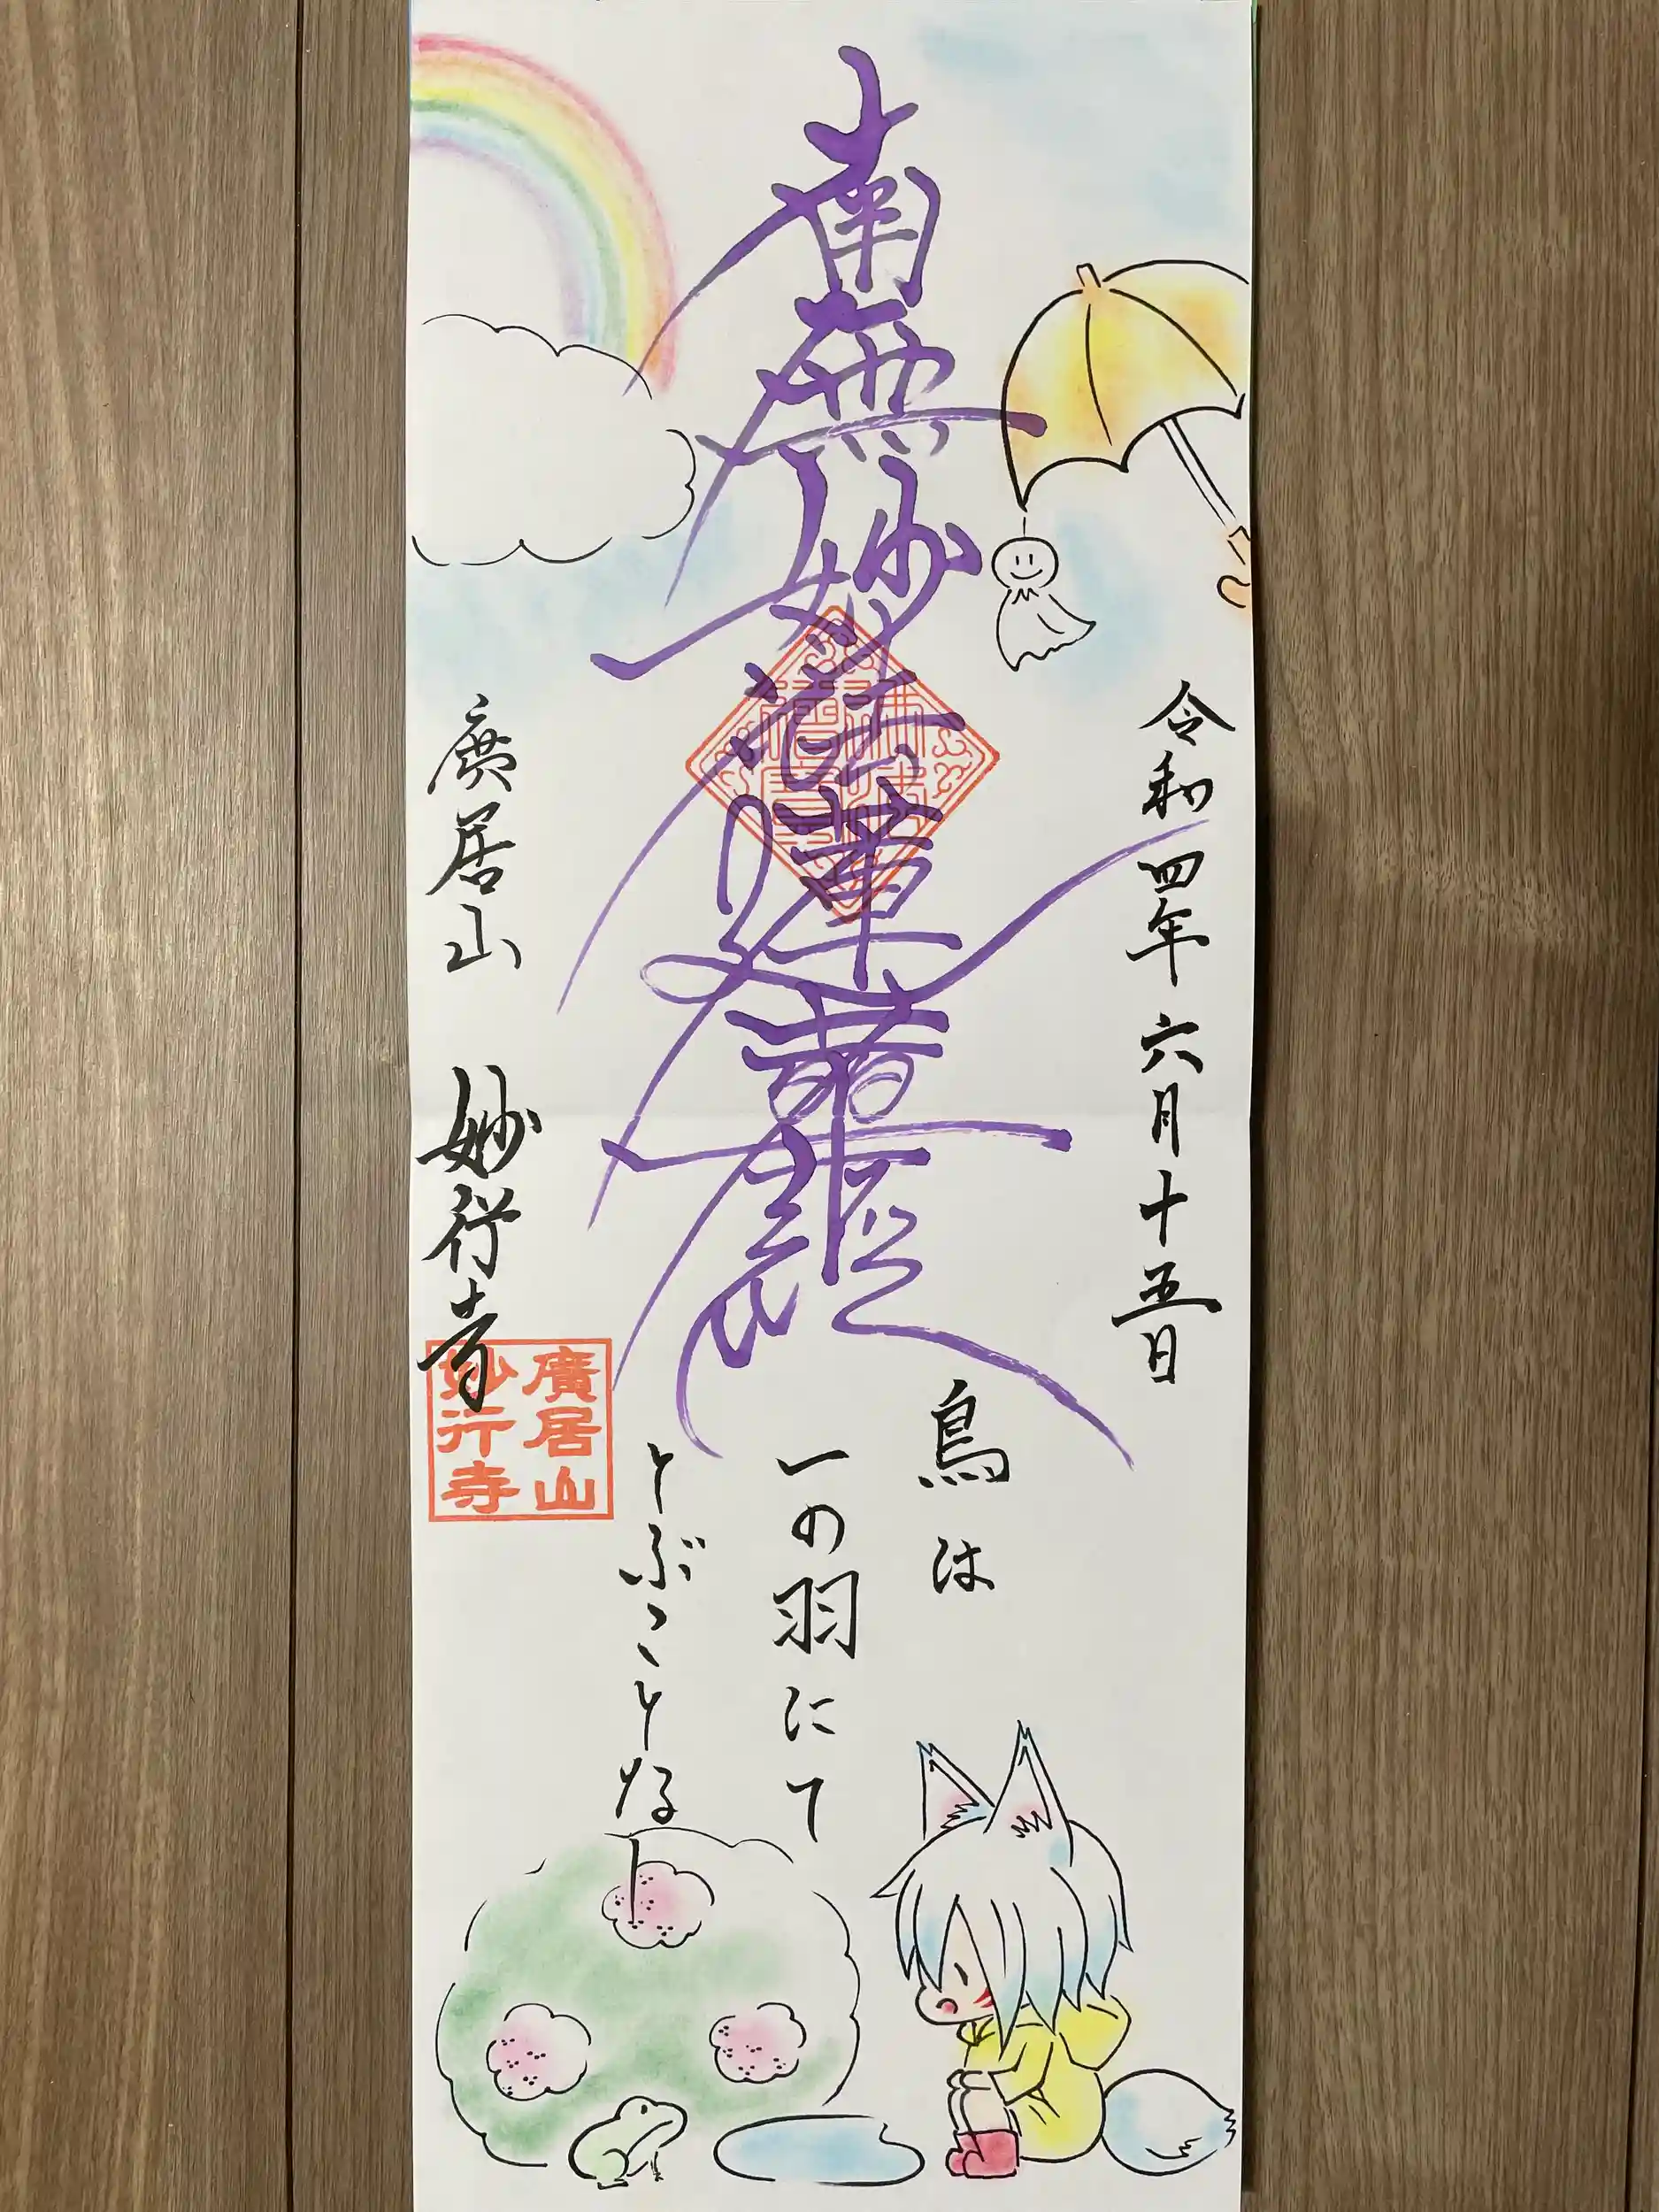 令和四年六月十五日
南無妙法蓮華経
鳥は
一の羽にて
とぶことなし
廣居山 妙行寺
廣居山
妙行寺